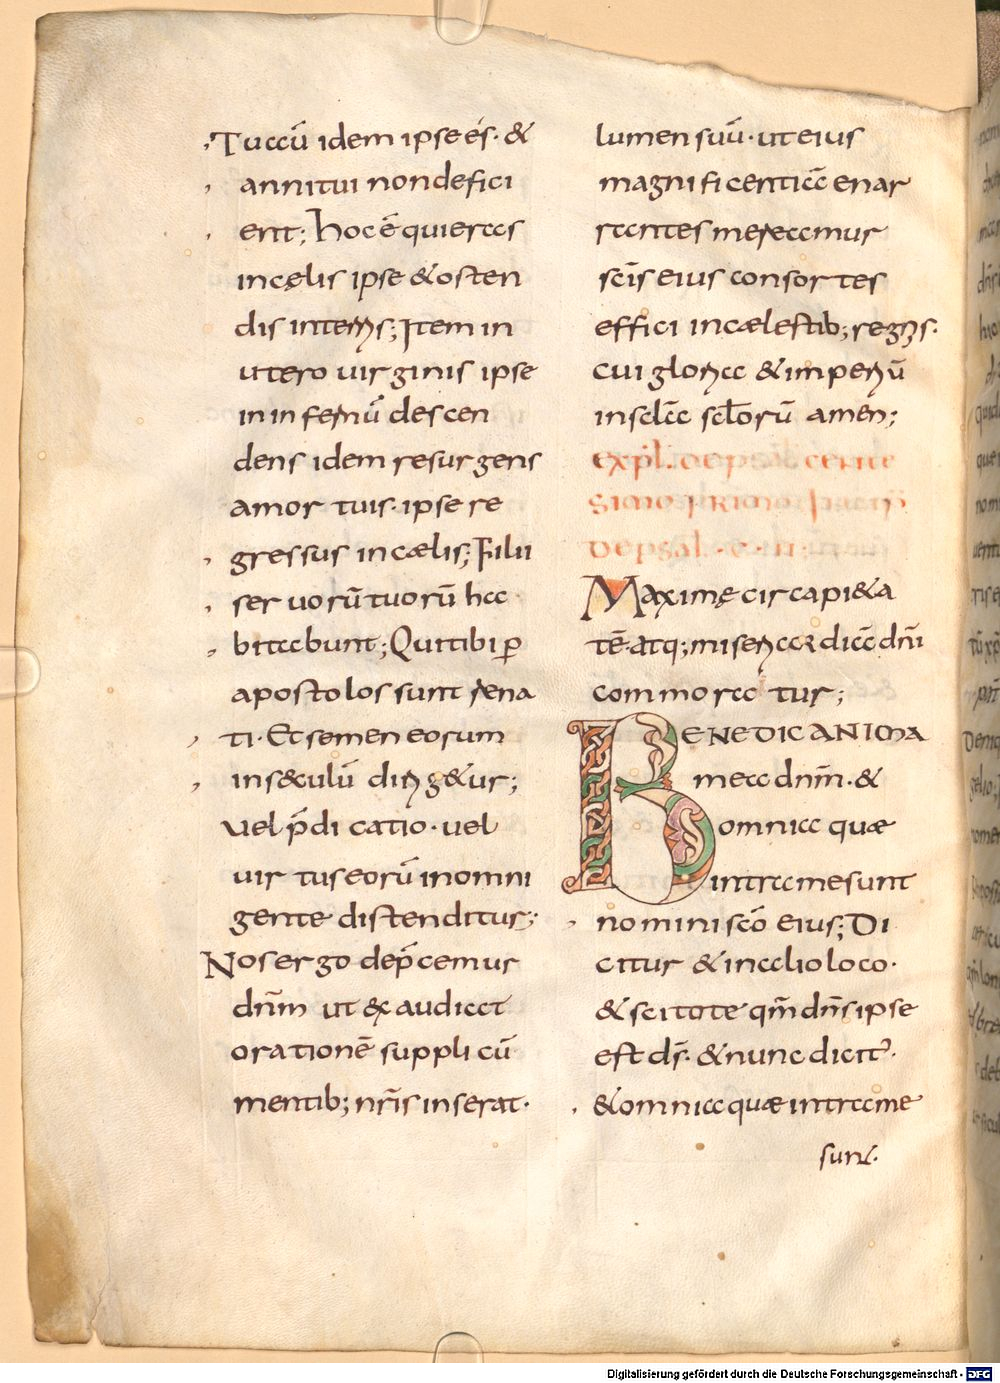 Tu aũ idem ipse es̄· &
anni tui non defici
ent; Hoc ē qui eras
in cęlis ipse & osten
dis in terris; Item in
utero uirginis ipse
in infernū descen
dens idem resurgens
amor tuis· ipse re
gressus in cælis; Filii
seruorū tuorū ha
bitabunt; Qui tibi ꝑ
apostolos sunt rena
ti· Et semen eorum
in sæculū dirig&ur;
Uel p̄dicatio· uel
uirtus eorū in omni
gente distenditur;
Nos ergo dep̄cemur
dn̄m ut exaudiat
orationē supplicū
mentib; nr̄is inserat·
lumen suū· ut eius
magnificentiā enar
rantes mereamur
sc̄is eius consortes
effici in cælestib; regnis·
cui gloria & imperiū
in sc̄la sc̄lorū amen;
expl̄. de psal̄ cente
simo primo·
de psal·c·ii·
Maximę circa pi&a
tē· atq; misericordiā dn̄i
commoratur;
BENEDIC ANIMA
mea dn̄m· &
omnia quæ
intra me sunt
nomini sc̄o eius; Di
citur & in alio loco·
& scitote qm̄ dn̄s ipse
est ds̄· & nunc dicit·
& omnia quæ intra me
sunt·
Digitalisierung gefördert durch die Deutsche Forschungsgemeinschaft - DFG